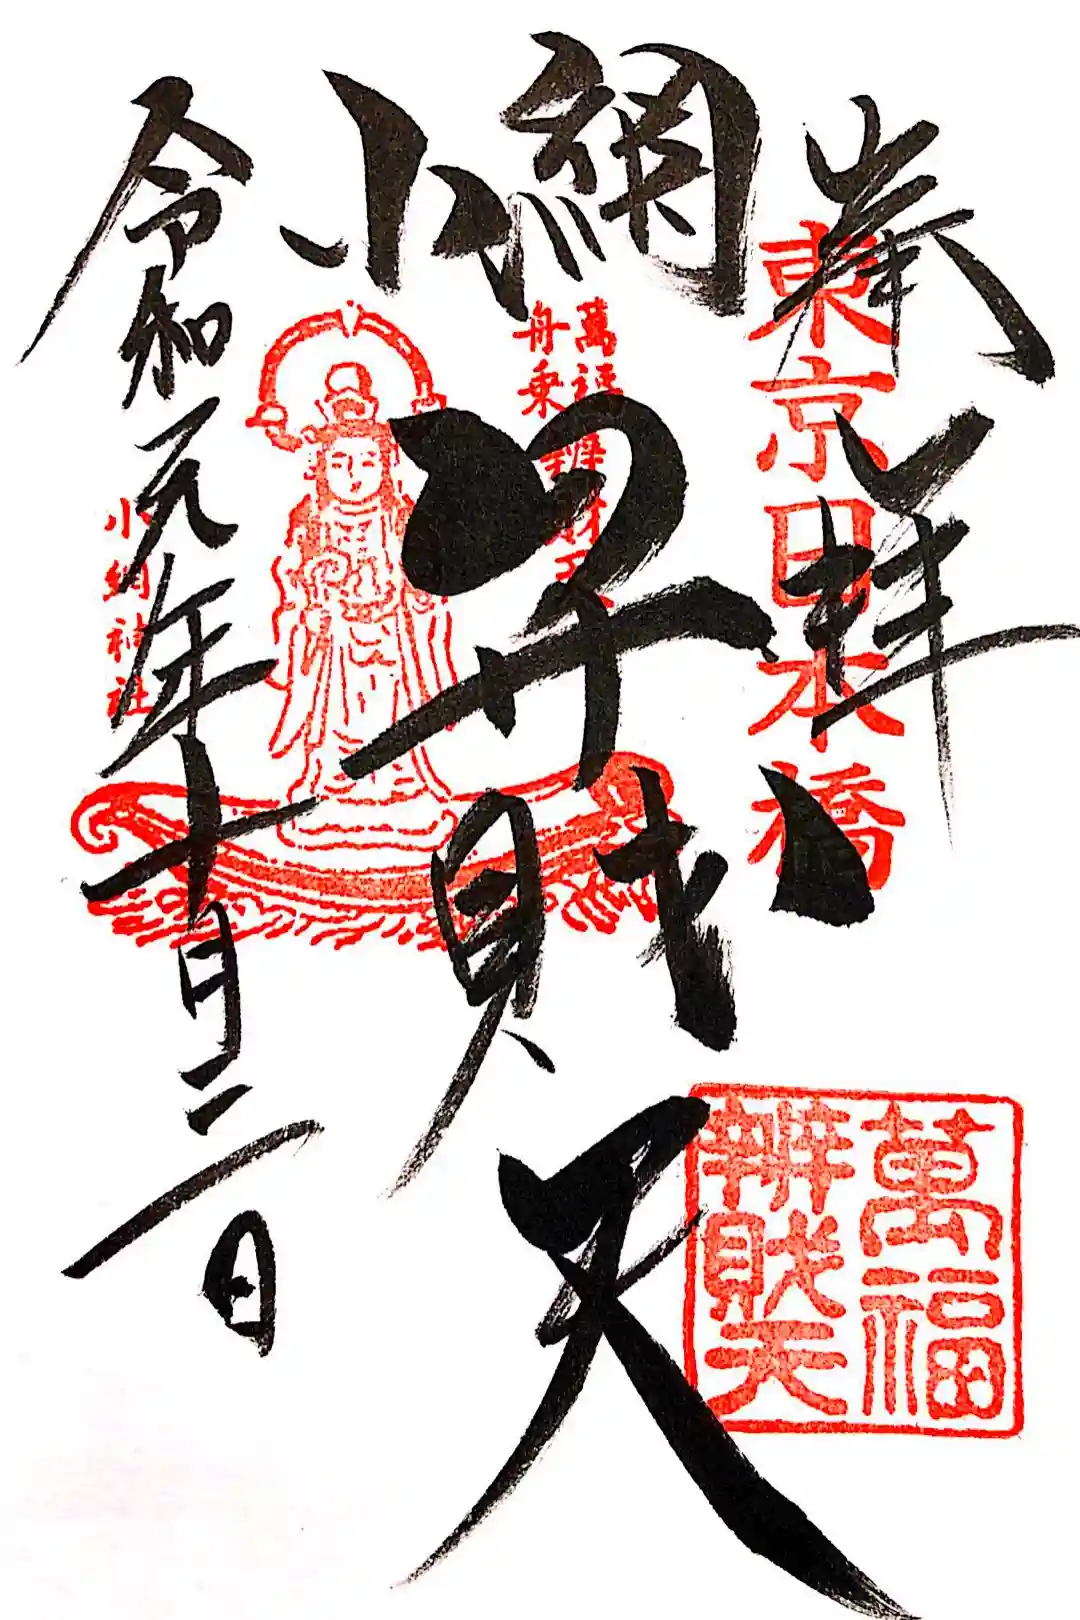 奉拝
東京日本橋
小網
弁財天
萬福
舟乗
令和元年十月二一日
小網神社
萬福
辨財天